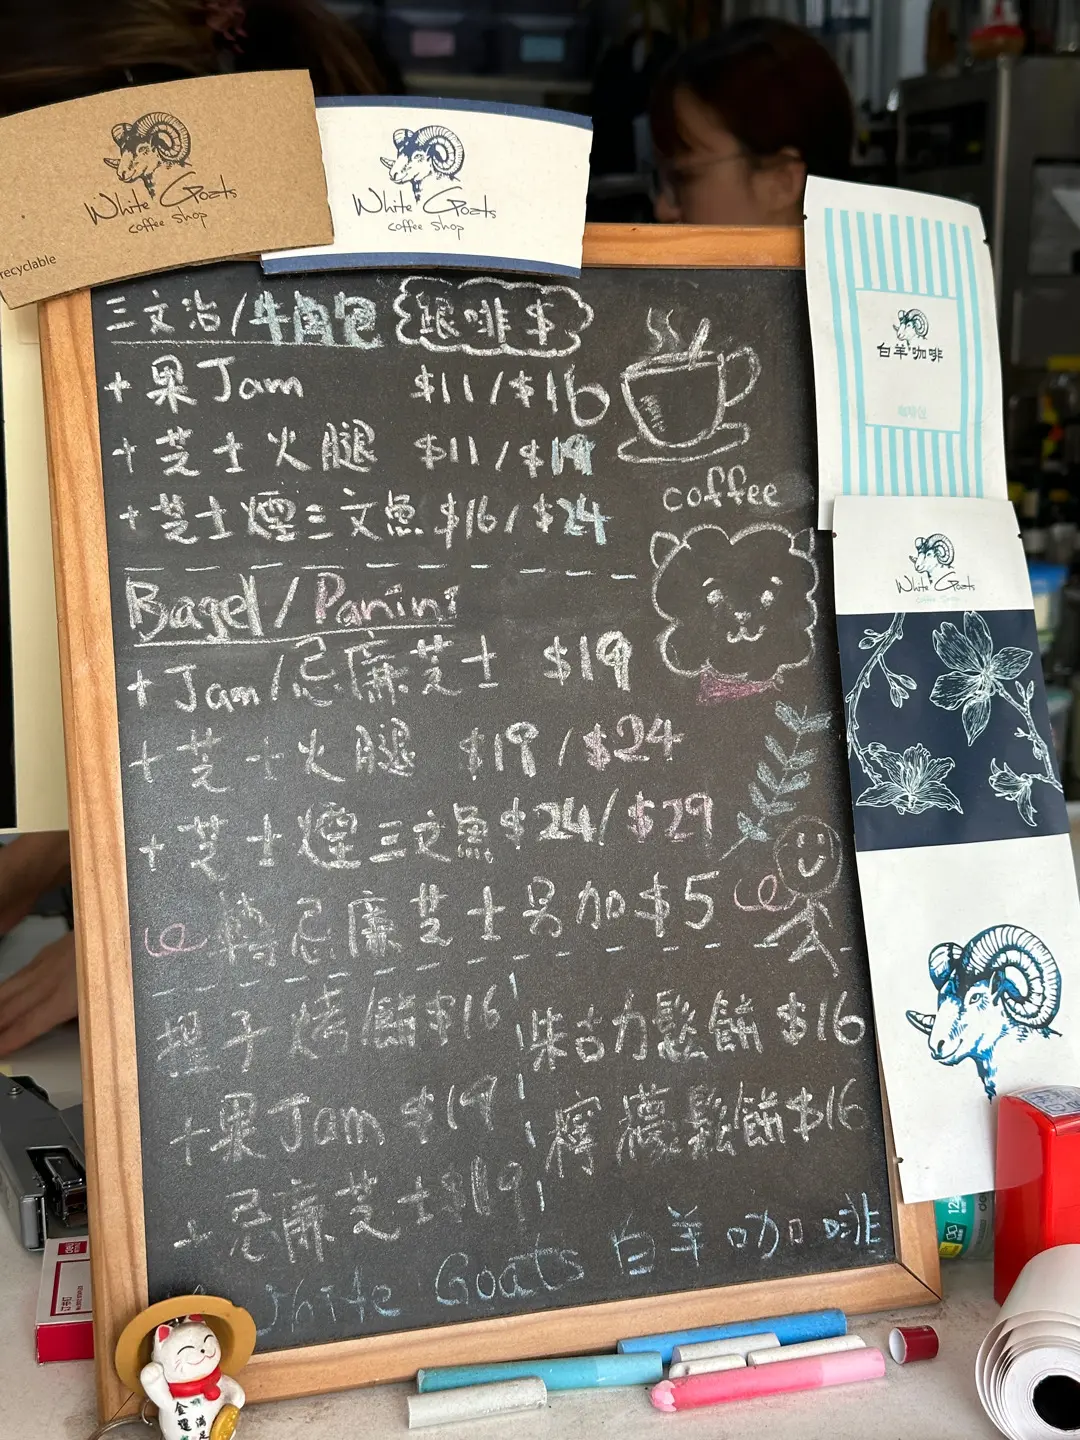 White Goats
coffee shop
recyclable
White Goats
coffee shop
三文治/牛角包 跟啡$
+果Jam $11/$16
+芝士火腿 $11/$19
+芝士煙三文魚 $16/$24
coffee
Bagel/Panini
+Jam/忌廉芝士 $19
+芝士火腿 $19/$24
+芝士煙三文魚 $24/$29
轉忌廉芝士另加$5
提子烤餅$16
+果Jam $19
+忌廉芝士$19
朱古力鬆餅$16
檸檬鬆餅$16
White Goats 白羊咖啡
白羊咖啡
White Goats
coffee shop